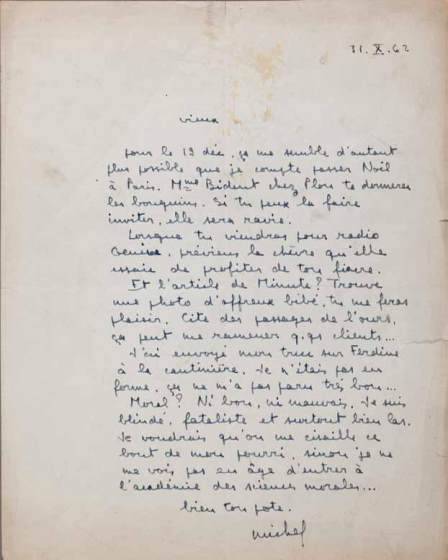 31.X.62
vieux
pour le 13 déc. ça me semble d'autant
plus possible que je compte passer Noël
à Paris. Mme Bident chez Plon te donnera
les bouquins. Si tu peux la faire
inviter, elle sera ravie.
Lorsque tu viendras pour radio
Genève, préviens la chèvre qu'elle
essaie de profiter de ton fiacre.
Et l'article de Minute ? Trouve
une photo d'affreux bébé, tu me feras
plaisir. Cite des passages de l'ours,
ça peut me ramener q.qs clients...
J'ai envoyé mon truc sur Ferdine
à la cantinière. Je n'étais pas en
forme, ça ne m'a pas paru très bon...
Moral ? Ni bon, ni mauvais. Je suis
blindé, fataliste et surtout bien las.
Je voudrais qu'on me cisaille ce
bout de mou pourri, sinon je ne
me vois pas en âge d'entrer à
l'académie des sciences morales...
bien ton pote.
Michel